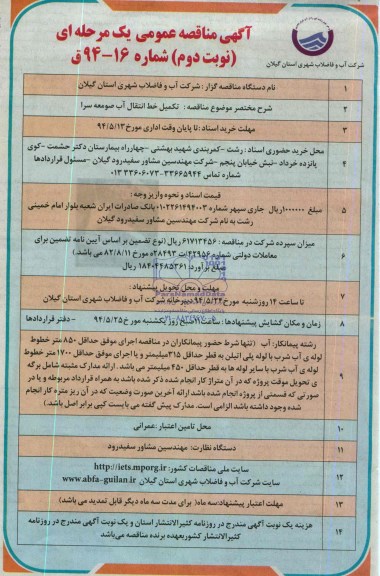 آگهی مناقصه عمومی یک مرحله ای
(نوبت دوم) شماره ۱۶-۹۴ ق
شرکت آب و فاضلاب شهری استان گیلان
۱ نام دستگاه مناقصه گزار : شرکت آب و فاضلاب شهری استان گیلان
۲ شرح مختصر موضوع مناقصه : تکمیل خط انتقال آب صومعه سرا
۳ مهلت خرید اسناد :تا پایان وقت اداری مورخ ۹۴/۵/۱۳
محل خرید حضوری اسناد : رشت -کمربندی شهید بهشتی -چهارراه بیمارستان دکتر حشمت -کوی
۴ پانزده خرداد -نبش خیابان پنجم -شرکت مهندسین مشاور سفیدرود گیلان -مسئول قراردادها
شماره تماس ۳۳۶۶۵۹۴۴-۳۳۶۰۶۰۷۳ ۰۱۳
قیمت اسناد و نحوه واریز وجه :
۵ مبلغ ۱۰۰۰۰۰۰ ریال جاری سپهر شماره ۰۱۰۲۲۶۱۴۹۴۰۰۳ بانک صادرات ایران شعبه بلوار امام خمینی
رشت به نام شرکت مهندسین مشاور سفیدرود گیلان
میزان سپرده شرکت در مناقصه : ۶۱۷۱۳۴۵۶ ریال (نوع تضمین بر اساس آیین نامه تضمین برای
۶ معاملات دولتی شماره ۴۲۹۵۶/ت ۲۸۴۹۳ه مورخ ۸۲/۸/۱۱ می باشد.)
مبلغ برآورد: ۱۸۴۰۴۴۸۵۳۶۱ ریال
مهلت و محل تحویل پیشنهاد:
۷ تا ساعت ۱۴ روزشنبه مورخ ۹۴/۵/۲۴ دبیرخانه شرکت آب و فاضلاب شهری استان گیلان
۸ زمان و مکان گشایش پیشنهادها : ساعت ۱۱ صبح روز یکشنبه مورخ ۹۴/۵/۲۵ - دفتر قراردادها
رشته پیمانکار: آب (تنها شرط حضور پیمانکاران در مناقصه اجرای موفق حداقل ۸۵۰ متر خطوط
لوله ی آب شرب با لوله پلی اتیلن به قطر حداقل ۳۱۵ میلیمتر و یا اجرای موفق حداقل ۱۷۰۰ متر خطوط
لوله ی آب شرب با سایر لوله ها به قطر حداقل ۴۵۰ میلیمتر می باشد. ارائه مدارک مثبته شامل برگه
۹ ی تحویل موقت پروژه که در آن متراژ کار انجام شده ذکر شده باشد به همراه قرارداد مربوطه و یا در
صورتی که قسمتی از پروژه انجام شده باشد ارائه آخرین صورت وضعیت که در آن ریز متره کار انجام
شده وجود داشته باشد الزامی است. مدارک پیش گفته می بایست کپی برابر اصل باشد.)
۱۰ محل تامین اعتبار :عمرانی
۱۱ دستگاه نظارت: مهندسین مشاور سفیدرود
سایت ملی مناقصات کشور: http://iets.mporg.ir
۱۲ سایت شرکت آب و فاضلاب شهری استان گیلان www.abfa-guilan.ir
۱۳ مهلت اعتبار پیشنهاد:سه ماه( برای مدت سه ماه دیگر قابل تمدید می باشد)
هزینه یک نوبت آگهی مندرج در روزنامه کثیرالانتشار استان و یک نوبت آگهی مندرج در روزنامه
۱۴ کثیرالانتشار کشوربعهده برنده مناقصه می‌باشد